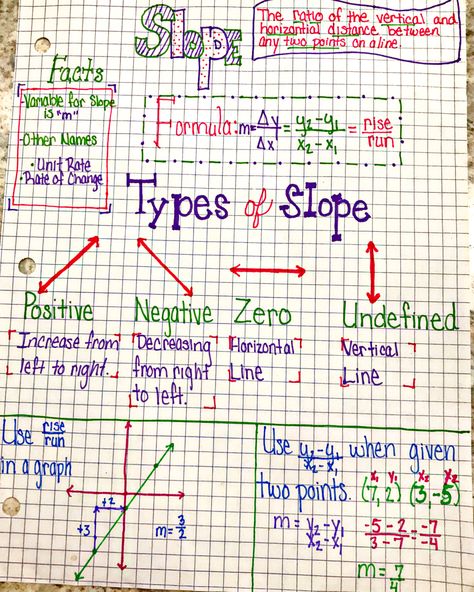 Slope
The ratio of the vertical and
horizantial distance between
any two points on a line.
Facts
-Variable for Slope
is "m"
-Other Names
• Unit Rate
• Rate of Change
Formula: m = Δy/Δx = y₂-y₁/x₂-x₁ = rise/run
Types of Slope
Positive
Increase from
left to right.
Negative
Decreasing
from right
to left.
Zero
Horizontal
Line
Undefined
Vertical
Line
Use rise/run
in a graph
+2
+3
m = 3/2
Use y₂-y₁/x₂-x₁ when given
two points. (7, 2) (3, -5)
x₁ y₁ x₂ y₂
m = y₂-y₁/x₂-x₁ -5-2/3-7 = -7/-4
m = 7/4